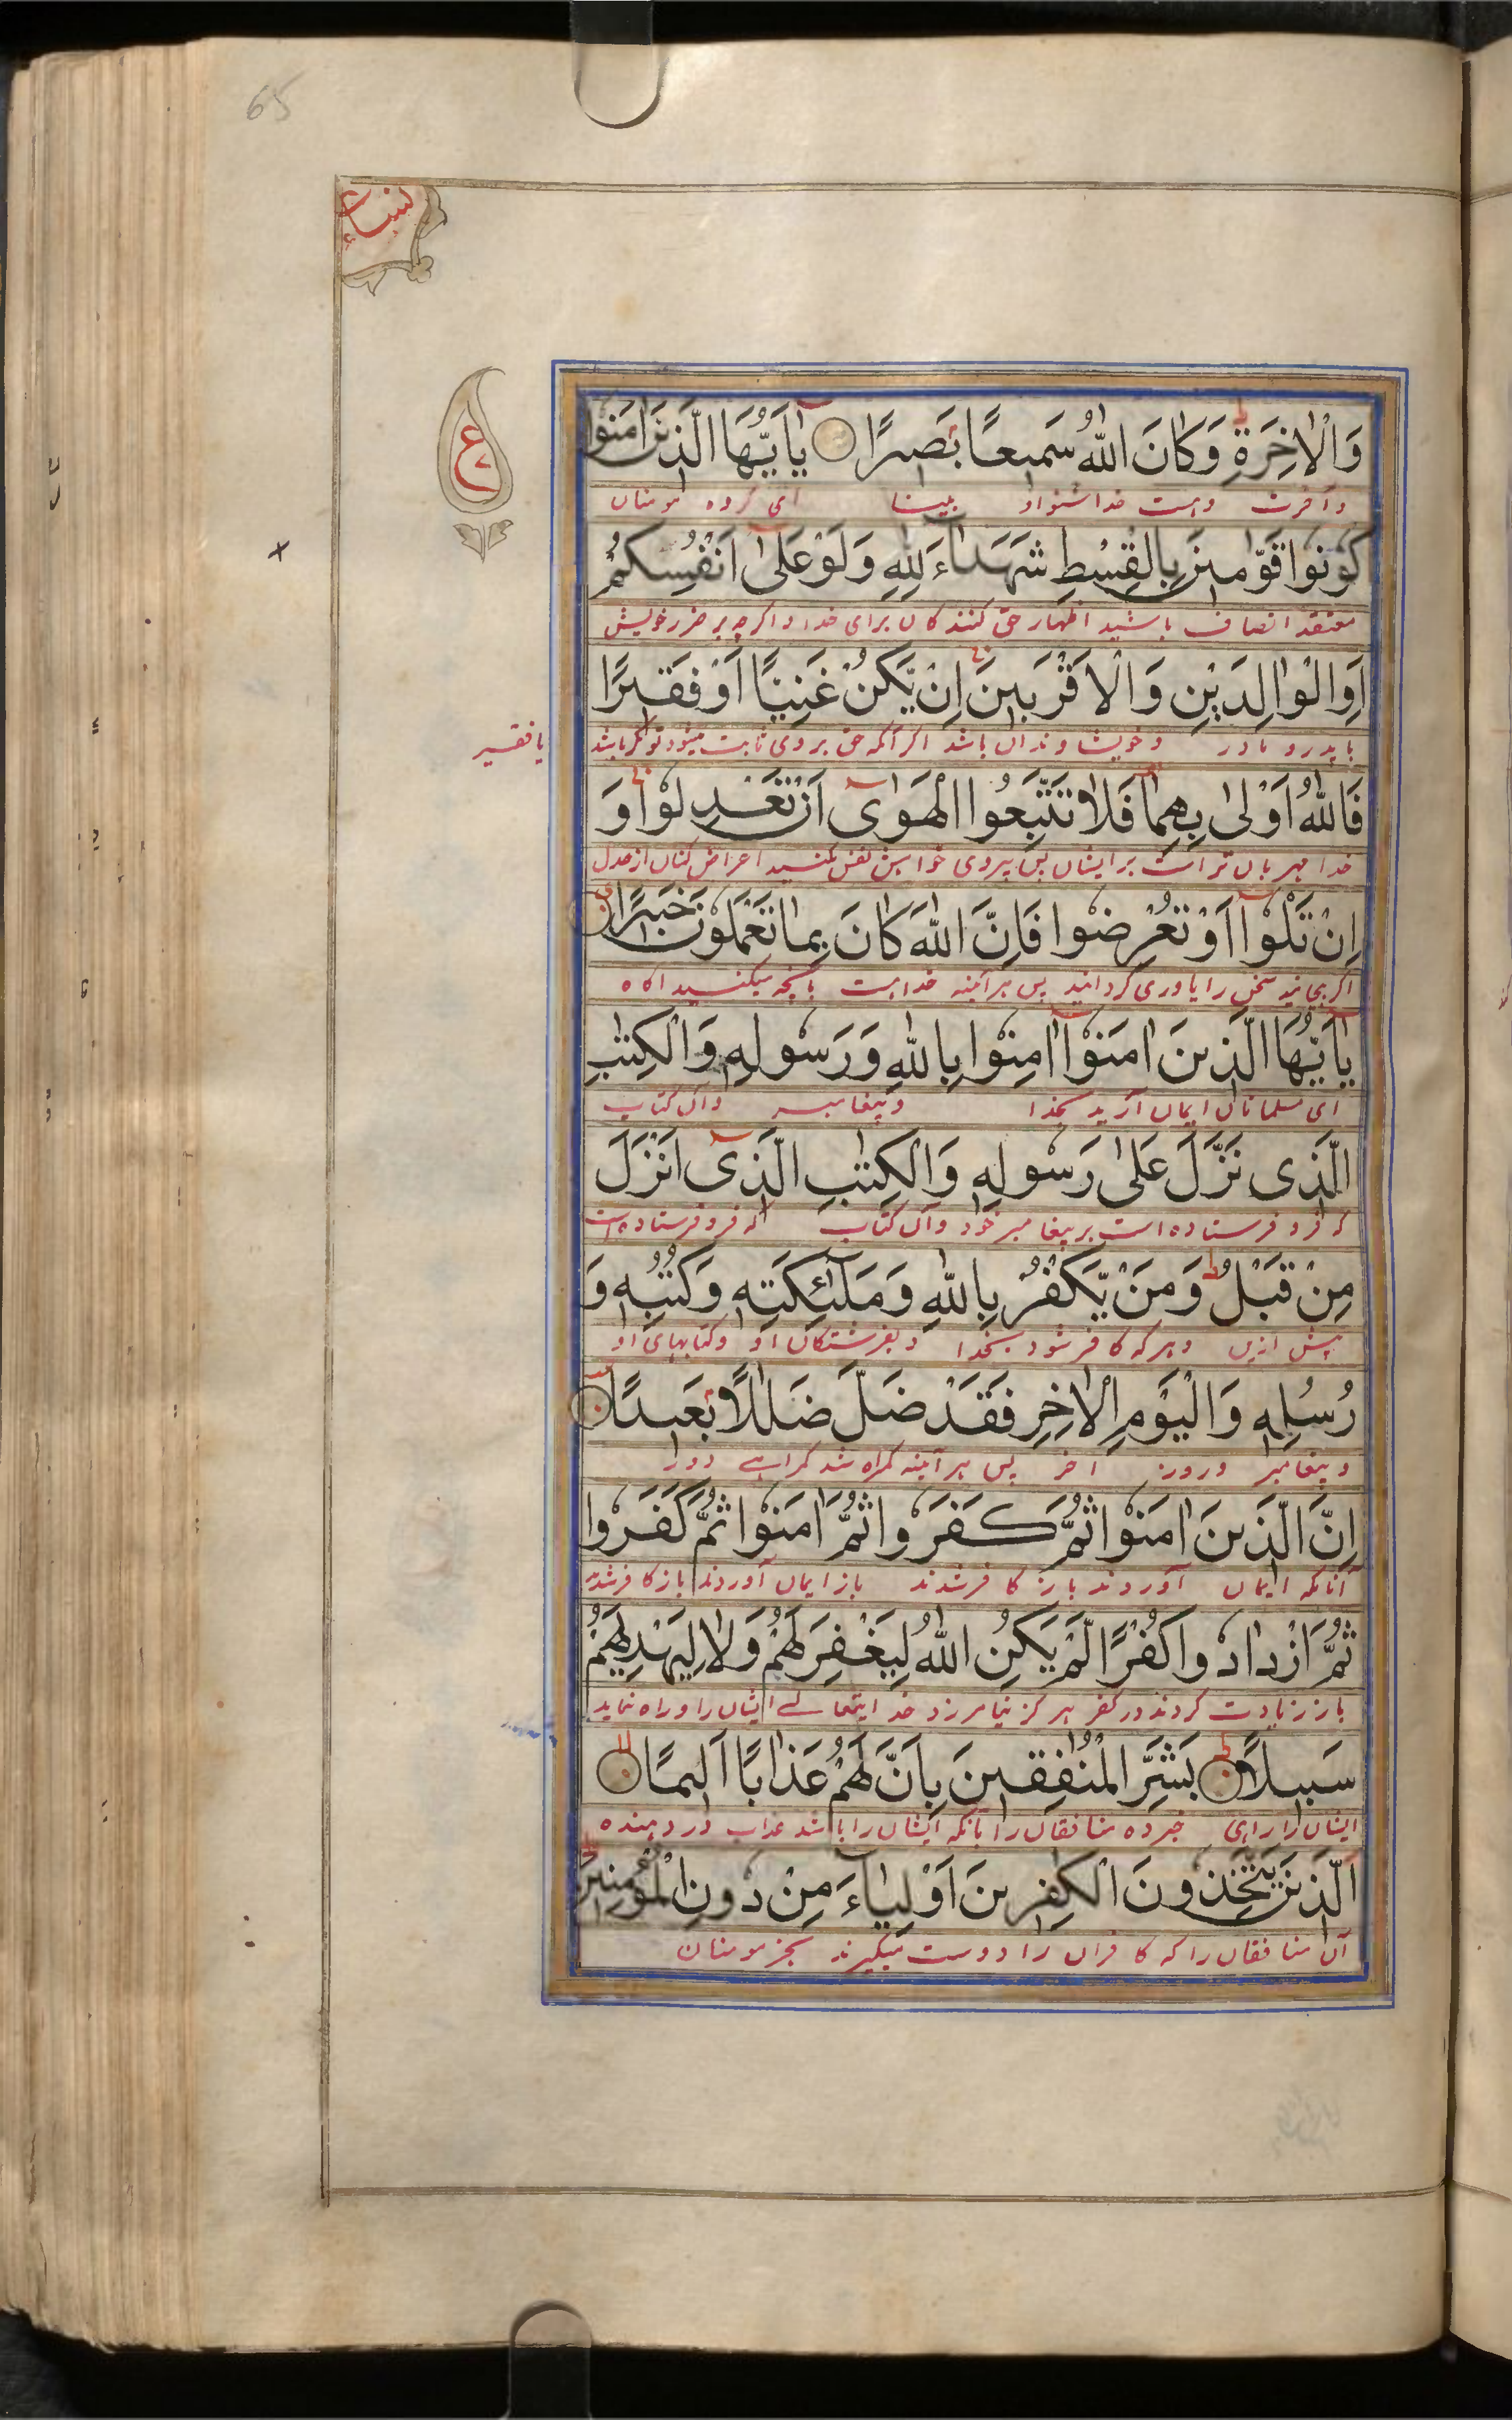 65
نساء
ع
وَالْاٰخِرَةِ وَكَانَ اللّٰهُ سَمِيعًا بَصِيرًا يٰٓاَيُّهَا الَّذِينَ اٰمَنُوا
و آخرت و هست خدا شنوا و بینا ای گروه مومنان
كُونُوا قَوّٰمِينَ بِالْقِسْطِ شُهَدَآءَ لِلّٰهِ وَلَوْ عَلٰٓى اَنْفُسِكُمْ
معتقد انصاف باشید اظهار حق کنندگان برای خدا و اگرچه بر ضرر خویش
اَوِ الْوَالِدَيْنِ وَالْاَقْرَبِينَ اِنْ يَّكُنْ غَنِيًّا اَوْ فَقِيرًا
یا پدر و مادر و خویشاوندان باشد اگر آنکه حق بر وی ثابت میشود توانگر باشد
یا فقیر
فَاللّٰهُ اَوْلٰى بِهِمَا فَلَا تَتَّبِعُوا الْهَوٰٓى اَنْ تَعْدِلُوا وَ
خدا مهربان تر است بر ایشان پس پیروی خواهش نفس مکنید اعراض کنان از عدل
اِنْ تَلْوٗٓا اَوْ تُعْرِضُوا فَاِنَّ اللّٰهَ كَانَ بِمَا تَعْمَلُونَ خَبِيرًا
اگر بپیچانید سخن را یا روی گردانید پس هر آئینه خدا هست بآنچه میکنید آگاه
يٰٓاَيُّهَا الَّذِينَ اٰمَنُوٓا اٰمِنُوا بِاللّٰهِ وَرَسُولِهٖ وَالْكِتٰبِ
ای مسلمانان ایمان آرید بخدا و پیغامبر و آن کتاب
الَّذِى نَزَّلَ عَلٰى رَسُولِهٖ وَالْكِتٰبِ الَّذِىٓ اَنْزَلَ
که فرو فرستاده است بر پیغامبر خود و آن کتاب که فرو فرستاده است
مِنْ قَبْلُ وَمَنْ يَّكْفُرْ بِاللّٰهِ وَمَلٰٓئِكَتِهٖ وَكُتُبِهٖ وَ
پیش ازین و هر که کافر شود بخدا و بفرشتگان او و کتابهای او
رُسُلِهٖ وَالْيَوْمِ الْاٰخِرِ فَقَدْ ضَلَّ ضَلٰلًا بَعِيدًا
و پیغامبر و روز آخر پس هر آئینه گمراه شد گمراهی دور
اِنَّ الَّذِينَ اٰمَنُوا ثُمَّ كَفَرُوا ثُمَّ اٰمَنُوا ثُمَّ كَفَرُوا
آنانکه ایمان آوردند باز کافر شدند باز ایمان آوردند باز کافر شدند
ثُمَّ ازْدَادُوا كُفْرًا لَّمْ يَكُنِ اللّٰهُ لِيَغْفِرَ لَهُمْ وَلَا لِيَهْدِيَهُمْ
باز زیادت کردند در کفر هرگز نیامرزد خدا ایتعالی ایشان را و راه نماید
سَبِيلًا بَشِّرِ الْمُنٰفِقِينَ بِاَنَّ لَهُمْ عَذَابًا اَلِيمًا
ایشان را راهی خبر ده منافقان را بآنکه ایشان را باشد عذاب درد دهنده
الَّذِينَ يَتَّخِذُونَ الْكٰفِرِينَ اَوْلِيَآءَ مِنْ دُونِ الْمُؤْمِنِينَ
آن منافقان را که کافران را دوست میگیرند بجز مومنان